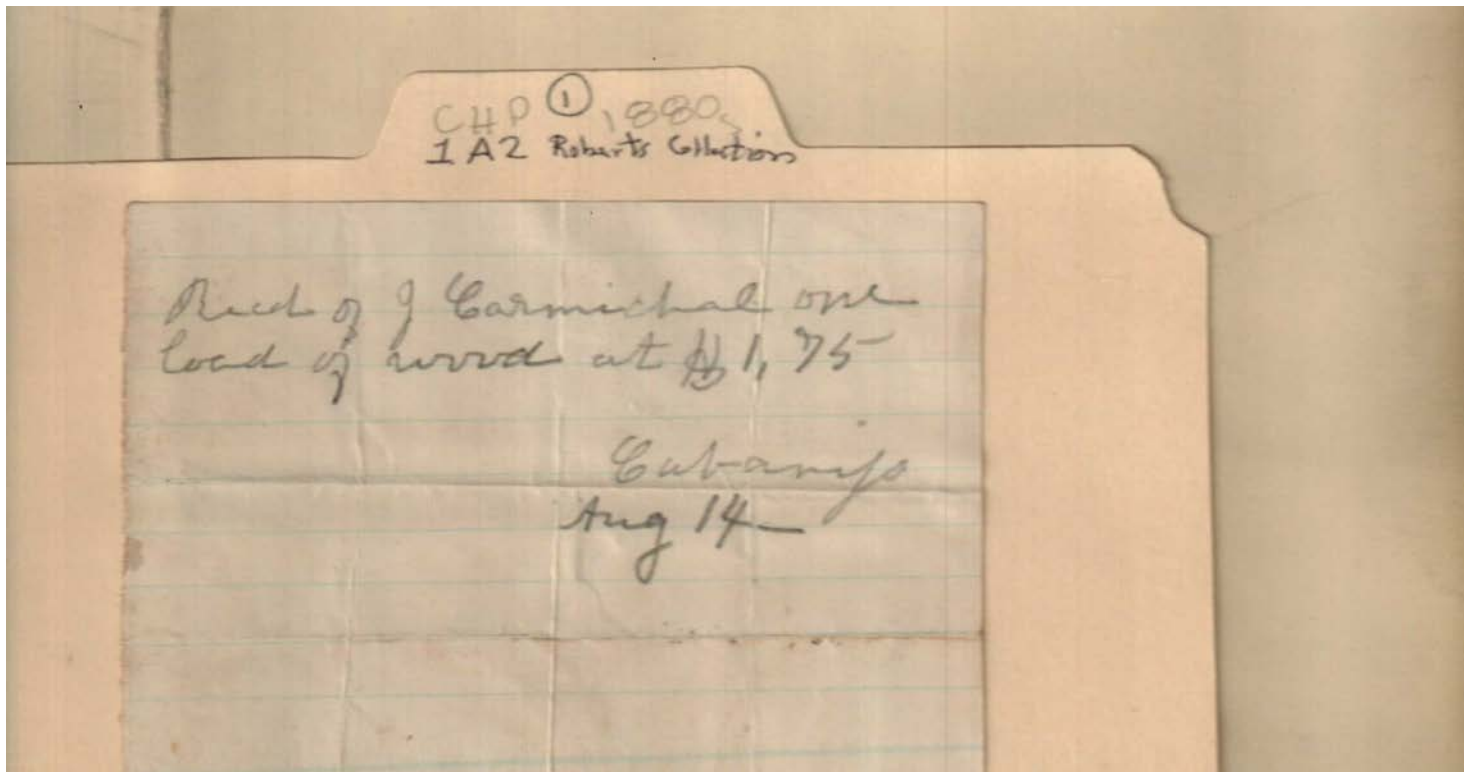 CHP ① 1880s
1A2 Roberts Collection
Recd of J Carmichal one
load of wood at $1,75
Cabaniss
Aug 14